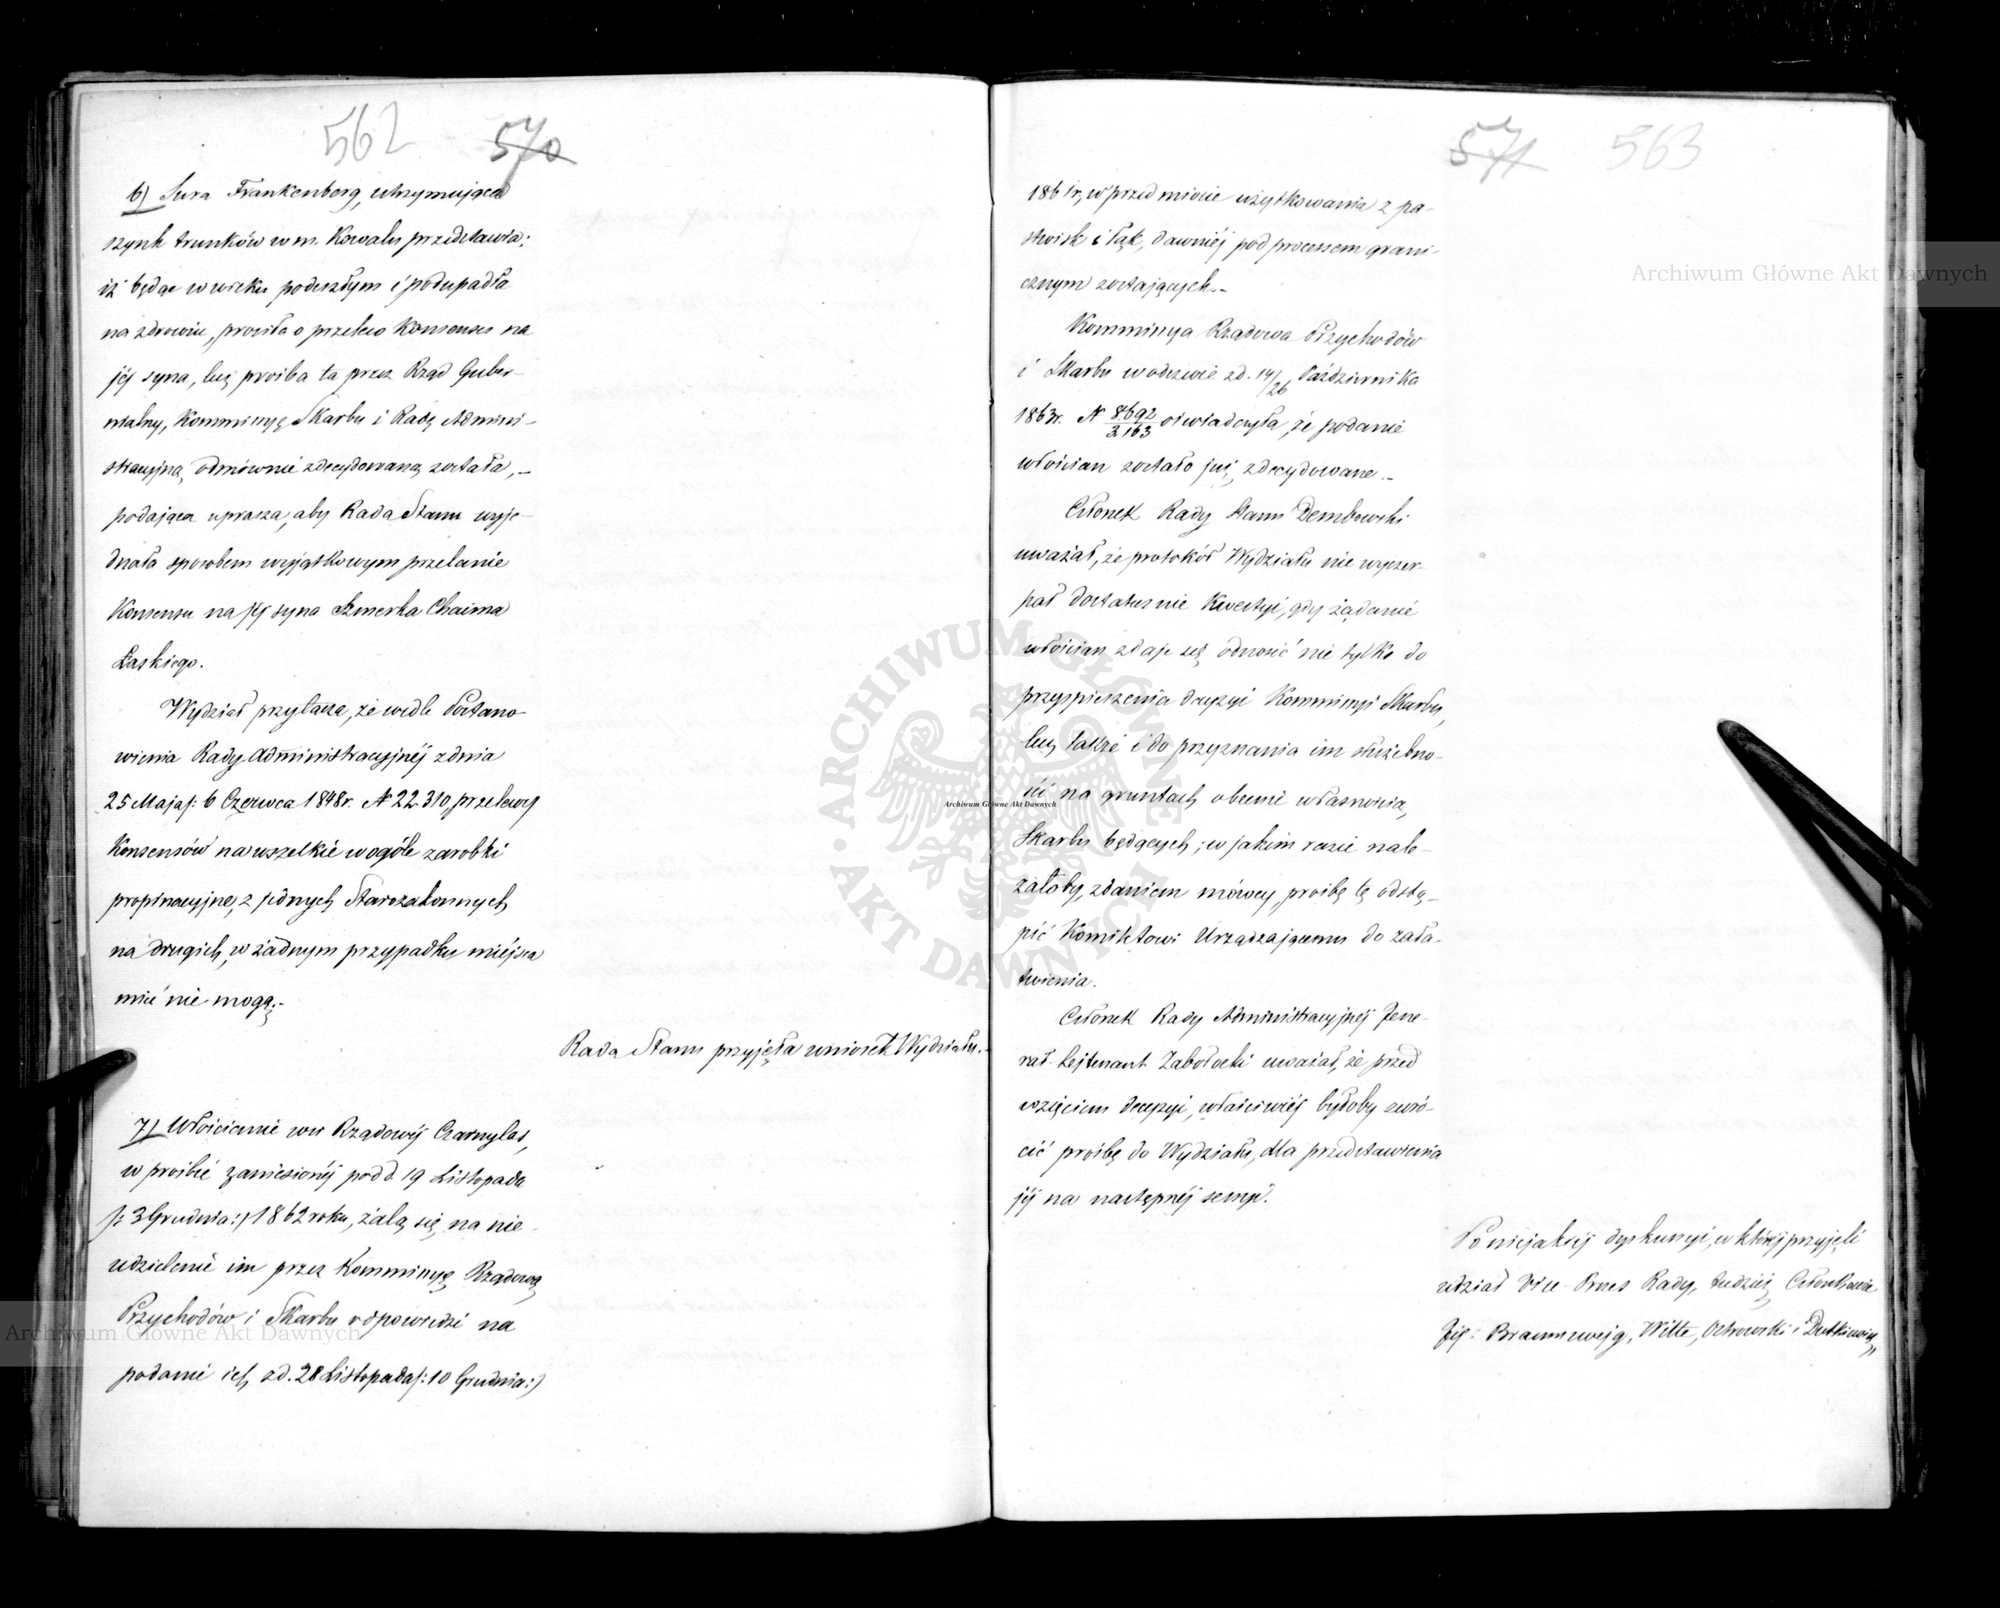 562 570
6) Sura Frankenberg, utrzymująca
szynk trunków w m. Kowalu przedstawia:
iż będąc w wieku podeszłym i podupadła
na zdrowiu, prosiła o przelew Konsensu na
jéj syna, lecz prośba ta przez Rząd Guber-
nialny, Kommissyę Skarbu i Radę Admini-
stracyjną odmównie zdecydowaną została, –
podająca uprasza, aby Rada Stanu wyje-
dnała sposobem wyjątkowym przelanie
Konsensu na jéj syna Szmerka Chaima
Łaskiego.
Wydział przytacza, że wedle Postano-
wienia Rady Administracyjnéj z dnia
25 Maja /: 6 Czerwca 1848 r. N 22.310, przelewy
Konsensów na wszelkie w ogóle zarobki
propinacyjne, z jednych Starozakonnych
na drugich, w żadnym przypadku miéjsca
mieć nie mogą. –
Rada Stanu przyjęła wniosek Wydziału. –
7) Włościanie wsi Rządowéj Czarnylas,
w prośbie zaniesionéj pod d. 19 Listopada
/: 3 Grudnia :/ 1862 roku, żalą się na nie-
udzielenie im przez Kommissyę Rządową
Przychodów i Skarbu odpowiedzi na
podanie ich z d. 28 Listopada /: 10 Grudnia :/
571 563
1861 r., w przedmiocie użytkowania z pa-
stwisk i łąk, dawniéj pod processem grani-
cznym zostających. –
Kommissya Rządowa Przychodów
i Skarbu w odezwie z d. 14/26 Października
1863 r. N 8692/3163 oświadczyła, że podanie
włościan zostało już zdecydowane. –
Członek Rady Stanu Dembowski
uważał, że protokół Wydziału nie wyczer-
pał dostatecznie Kwestyi, gdy żądanie
włościan zdaje się odnosić nie tylko do
przyspieszenia decyzyi Kommissyi Skarbu,
lecz także i do przyznania im służebno-
ści na gruntach obecnie własnością
Skarbu będących; w jakim razie nale-
żałoby, zdaniem mówcy, prośbę tę odstą-
pić Komitetowi Urządzającemu do zała-
twienia.
Członek Rady Administracyjnéj Jene-
rał-Lejtenant Zabołocki uważał, że przed
wzięciem decyzyi, właściwiéj byłoby zwró-
cić prośbę do Wydziału, dla przedstawienia
jéj na następnéj sessyi.
Po niejakiéj dyskussyi, w któréj przyjęli
udział Vice-Prezes Rady, tudzież Członkowie
Jéj: Braunszwejg, Witte, Ostrowski i Dutkiewicz,,
Archiwum Główne Akt Dawnych
Archiwum Główne Akt Dawnych
Archiwum Główne Akt Dawnych
ARCHIWUM GŁÓWNE AKT DAWNYCH